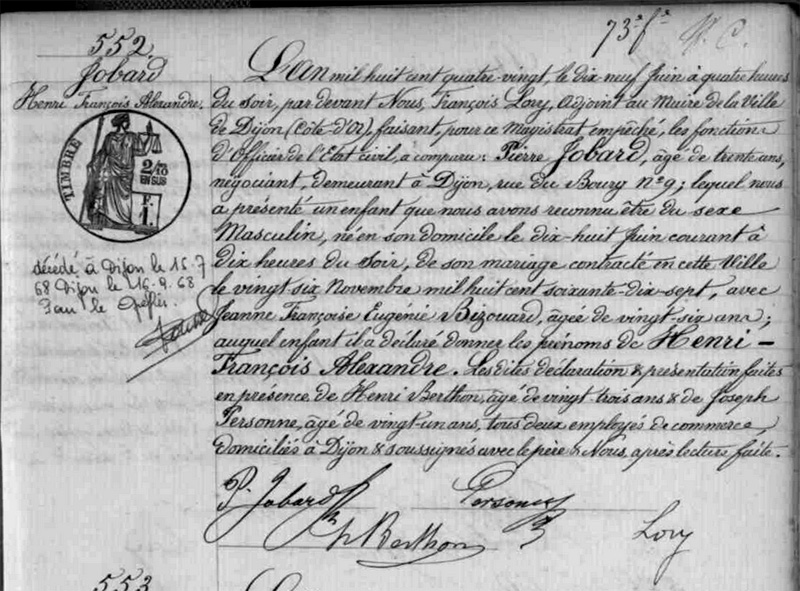 73e f.
N. C.
552
Jobard
Henri François Alexandre.
TIMBRE
2/10
EN SUS
F.
1.
décédé à Dijon le 15.7
68 Dijon le 16.9.68
Pour le Greffier.
L'an mil huit cent quatre-vingt, le dix neuf Juin à quatre heures
du Soir, par devant Nous, François Lory, Adjoint au Maire de la Ville
de Dijon (Côte-d'Or), faisant, pour ce Magistrat empêché, les fonctions
d'Officier de l'Etat civil, a comparu: Pierre Jobard, âgé de trente ans,
négociant, demeurant à Dijon, rue du Bourg No 9; lequel nous
a présenté un enfant que nous avons reconnu être du sexe
Masculin, né en son domicile le dix-huit Juin courant à
dix heures du Soir, de son mariage contracté en cette Ville
le vingt six Novembre mil huit cent soixante-dix-sept, avec
Jeanne Françoise Eugénie Bizouard, âgée de vingt-six ans;
auquel enfant il a déclaré donner les prénoms de Henri-
François Alexandre. Les dites déclaration & présentation faites
en présence de Henri Berthon, âgé de vingt-trois ans & de Joseph
Personne, âgé de vingt-un ans, tous deux employés de commerce,
domiciliés à Dijon & soussignés avec le père & Nous, après lecture faite.
P. Jobard
Personne
h Berthon
Lory
553